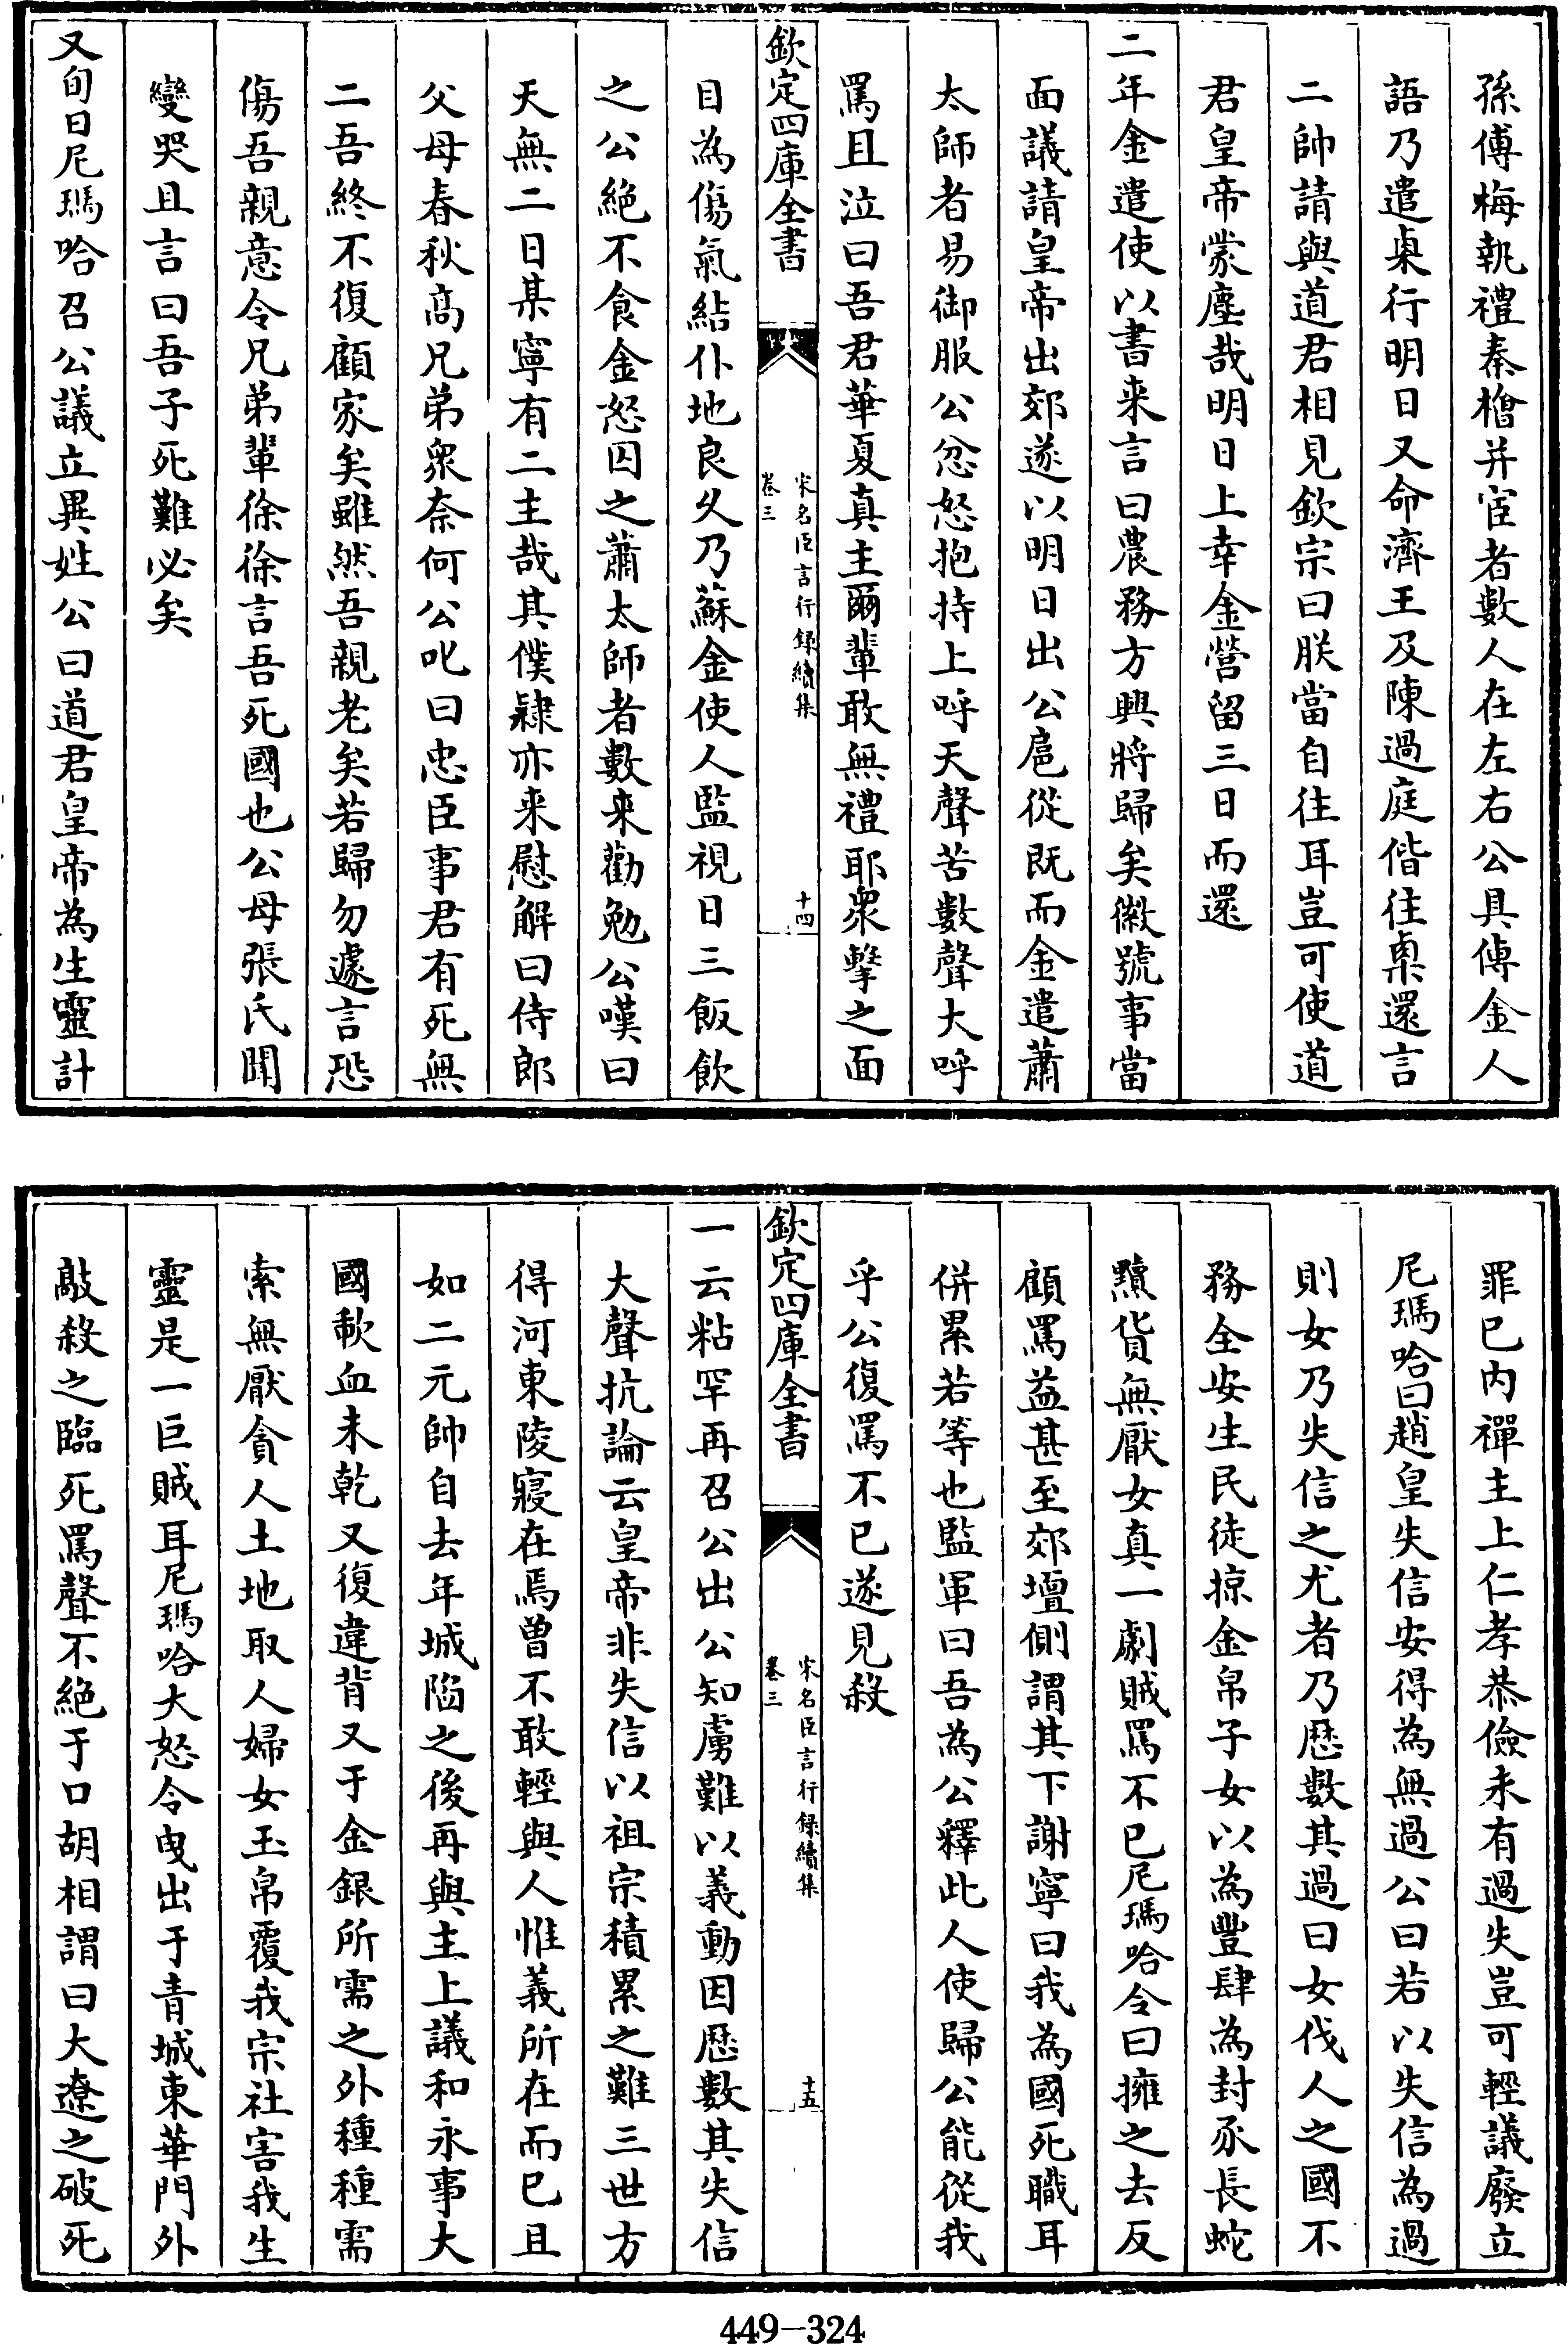 孫傅梅執禮秦檜并宦者數人在左右公具傳金人
語乃遣㮚行明日又命濟王及陳過庭偕往㮚還言
二帥請與道君相見欽宗曰朕當自往耳豈可使道
君皇帝蒙塵哉明日上幸金營留三日而還
二年金遣使以書来言曰農務方興將歸矣徽號事當
面議請皇帝出郊遂以明日出公扈從既而金遣蕭
太師者易御服公忿怒抱持上呼天聲苦數聲大呼
罵且泣曰吾君華夏真主爾輩敢無禮耶衆擊之面
欽定四庫全書
宋名臣言行録續集
卷三
十四
目為傷氣結仆地良久乃蘇金使人監視日三飯飲
之公絶不食金怒囚之蕭太師者數来勸勉公嘆曰
天無二日某寧有二主哉其僕隷亦来慰解曰侍郎
父母春秋髙兄弟衆奈何公叱曰忠臣事君有死無
二吾終不復顧家矣雖然吾親老矣若歸勿遽言恐
傷吾親意令兄弟輩徐徐言吾死國也公母張氏聞
變哭且言曰吾子死難必矣
又旬日尼瑪哈召公議立異姓公曰道君皇帝為生靈計
罪已内禪主上仁孝恭儉未有過失豈可輕議廢立
尼瑪哈曰趙皇失信安得為無過公曰若以失信為過
則女乃失信之尤者乃歴數其過曰女伐人之國不
務全安生民徒掠金帛子女以為豐肆為封豕長蛇
黷貨無厭女真一劇賊罵不已尼瑪哈令曰擁之去反
顧罵益甚至郊壇側謂其下謝寧曰我為國死職耳
併累若等也監軍曰吾為公釋此人使歸公能從我
乎公復罵不已遂見殺
欽定四庫全書
宋名臣言行録續集
卷三
十五
一云粘罕再召公出公知虜難以義動因歴數其失信
大聲抗論云皇帝非失信以祖宗積累之難三世方
得河東陵寢在焉曽不敢輕與人惟義所在而已且
如二元帥自去年城陷之後再與主上議和永事大
國歃血未乾又復違背又于金銀所需之外種種需
索無厭貪人土地取人婦女玉帛覆我宗社害我生
靈是一巨賊耳尼瑪哈大怒令曳出于青城東華門外
敲殺之臨死罵聲不絶于口胡相謂曰大遼之破死
449-324